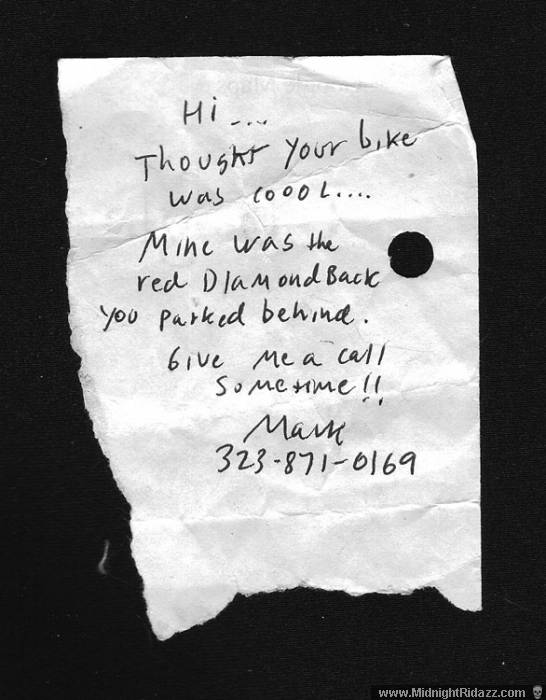 Hi....
Thought your bike
was coool....
Mine was the
red DiamondBack
you parked behind.
Give me a call
sometime!!
Mark
323-871-0169
www.MidnightRidazz.com